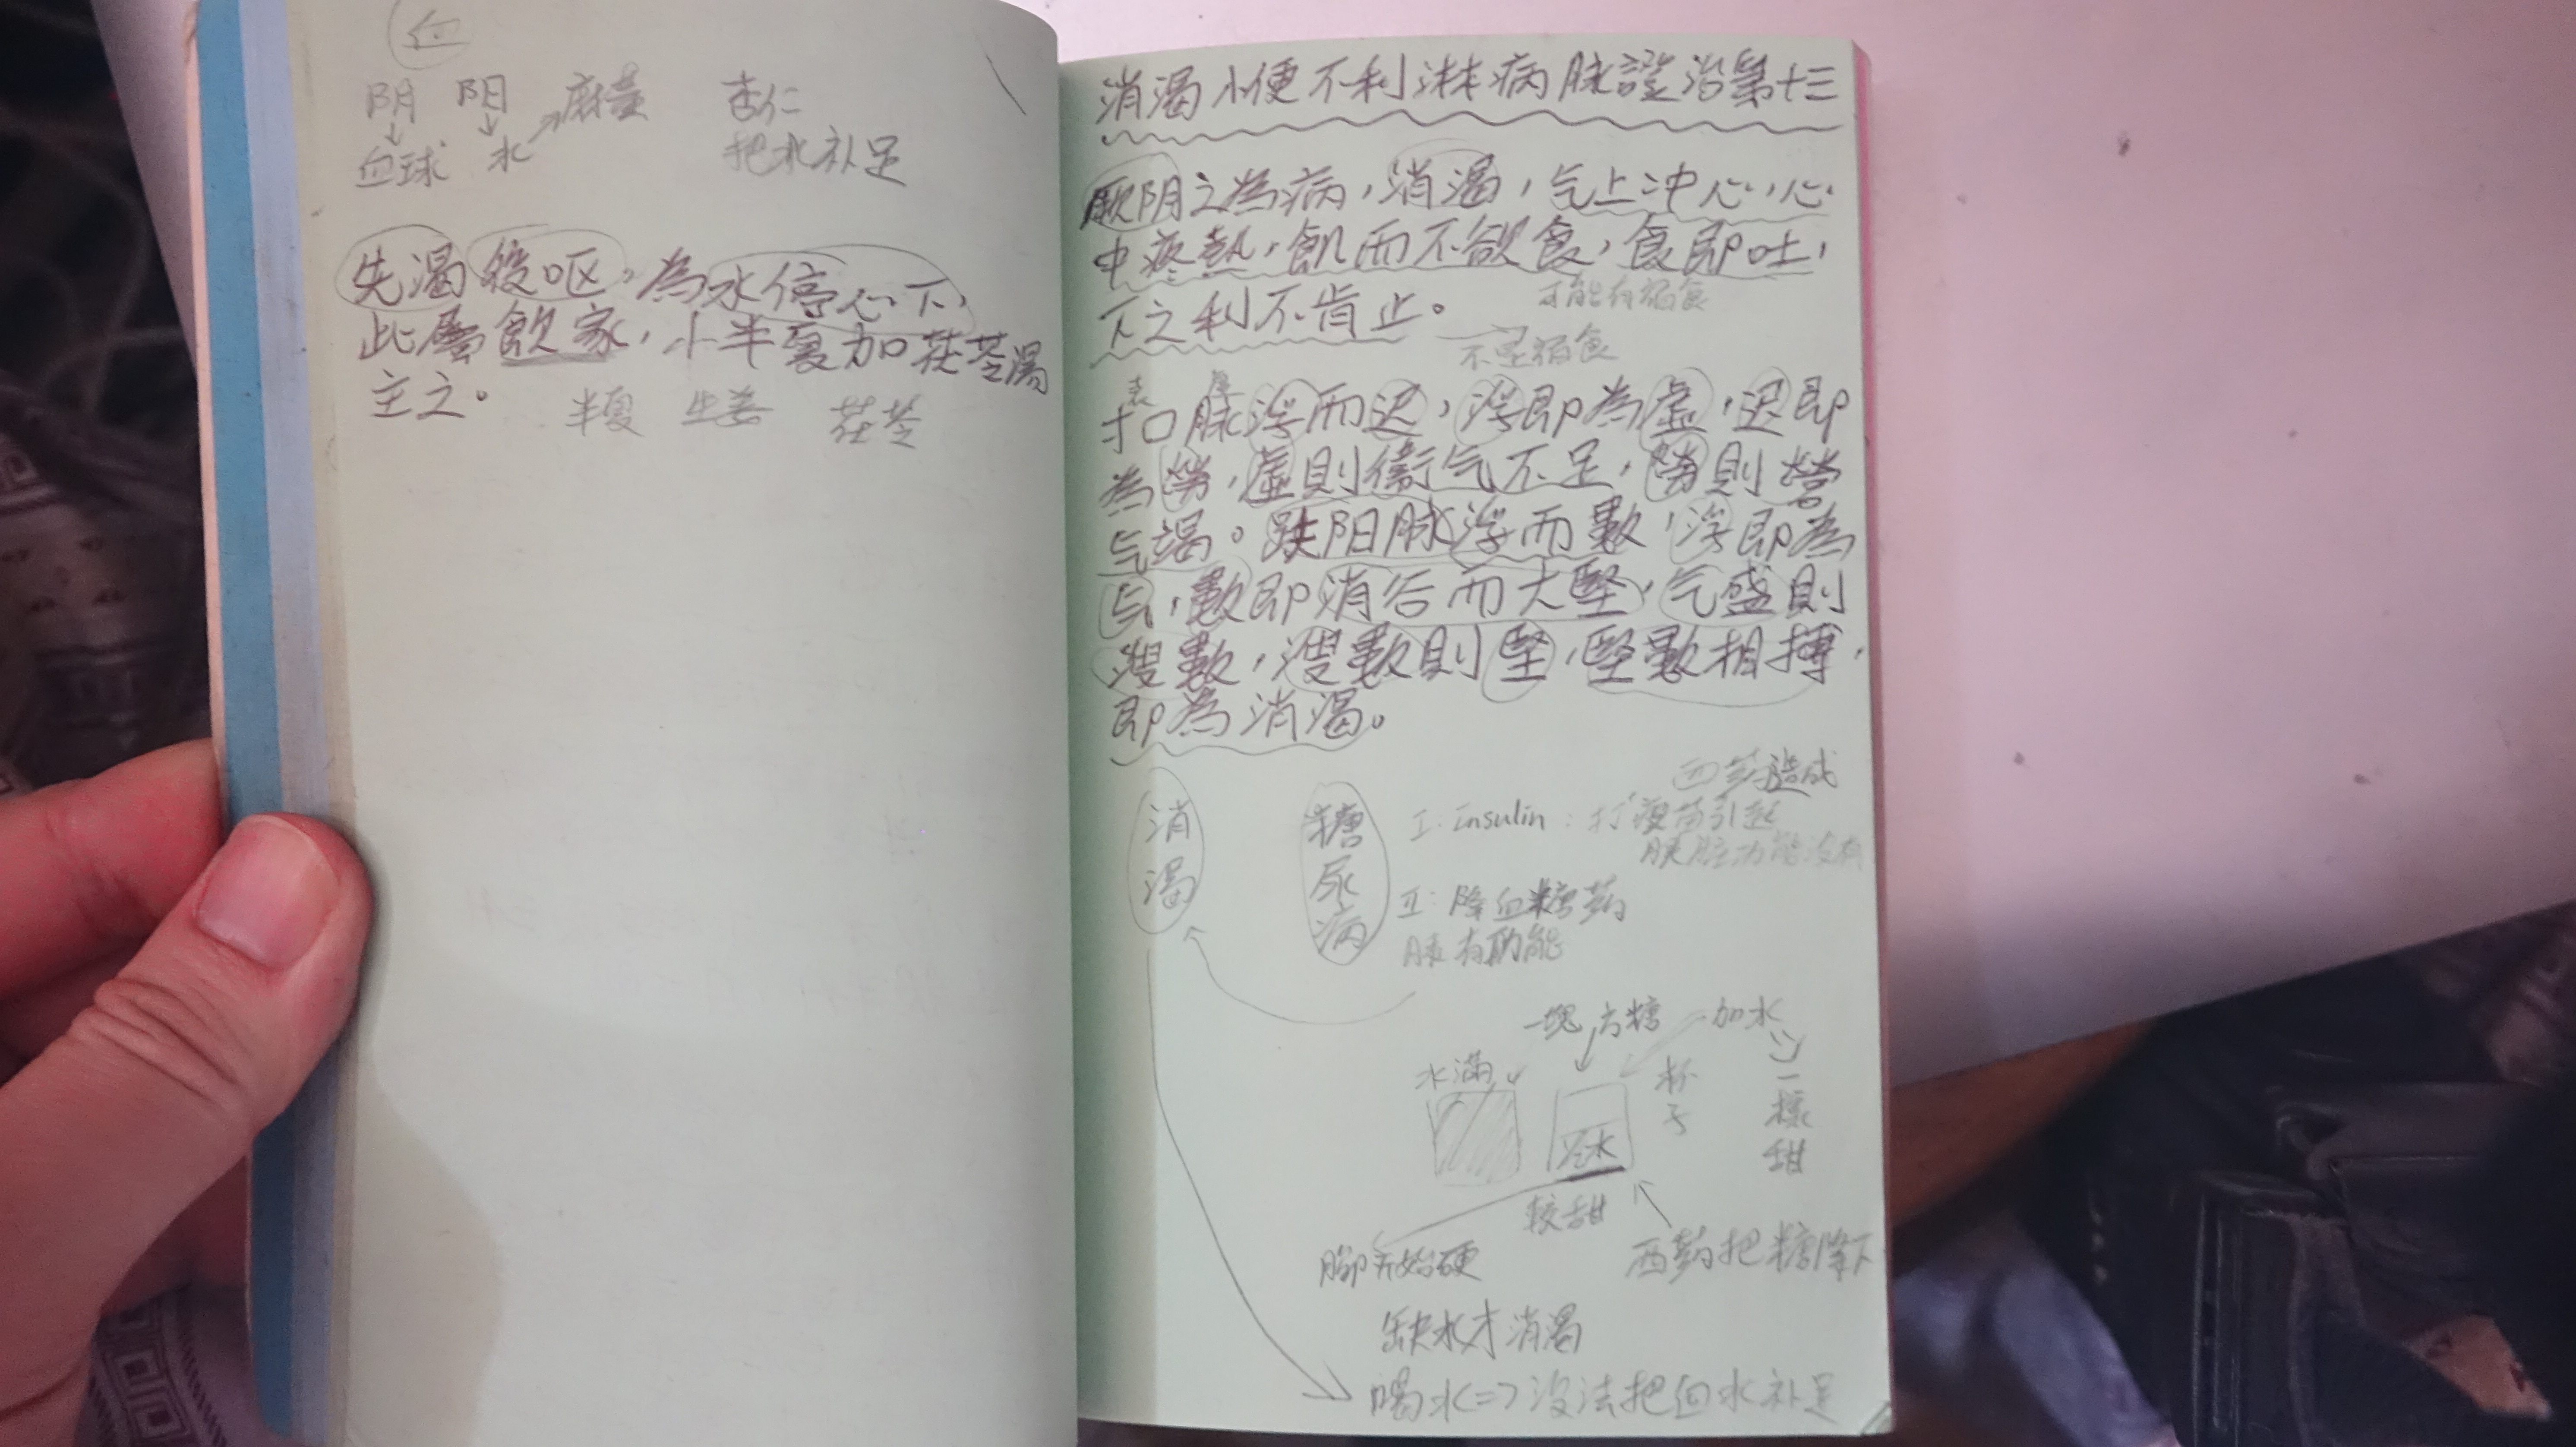 血
阴 阳 麻黄 杏仁
血球 水 把水补足
先渴後呕，為水停心下，
此屬飲家，小半夏加茯苓湯
主之。
半夏 生姜 茯苓
消渴小便不利淋病脉證治第十三
厥阴之為病，消渴，气上冲心，心
中疼熱，飢而不欲食，食即吐，
可能有宿食
下之利不肯止。
不是宿食
表
寸口脉浮而迟，浮即為虛，迟即
為勞，虛則衛气不足，勞則營
气竭。趺阳脉浮而數，浮即為
气，數即消谷而大堅，气盛則
溲數，溲數則堅，堅數相搏，
即為消渴。
西药造成
消渴 糖尿病 I: Insulin：打疫苗引起
胰脏功能没有
II: 降血糖药
胰有功能
一塊方糖 加水
水滿 杯子 一樣甜
水
較甜
腳开始硬 西药把糖降下
缺水才消渴
喝水=>没法把血水补足